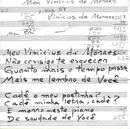 Meu Vinicius de Moraes
Vinicius de Moraes
Meu Vinicius de Moraes
Não consigo te esquecer
Quanto mais o tempo passa
Mais me lembro de você
Cadê o meu poetinha?
Cadê minha letra, cadê?
E morro neste piano
De saudade de você